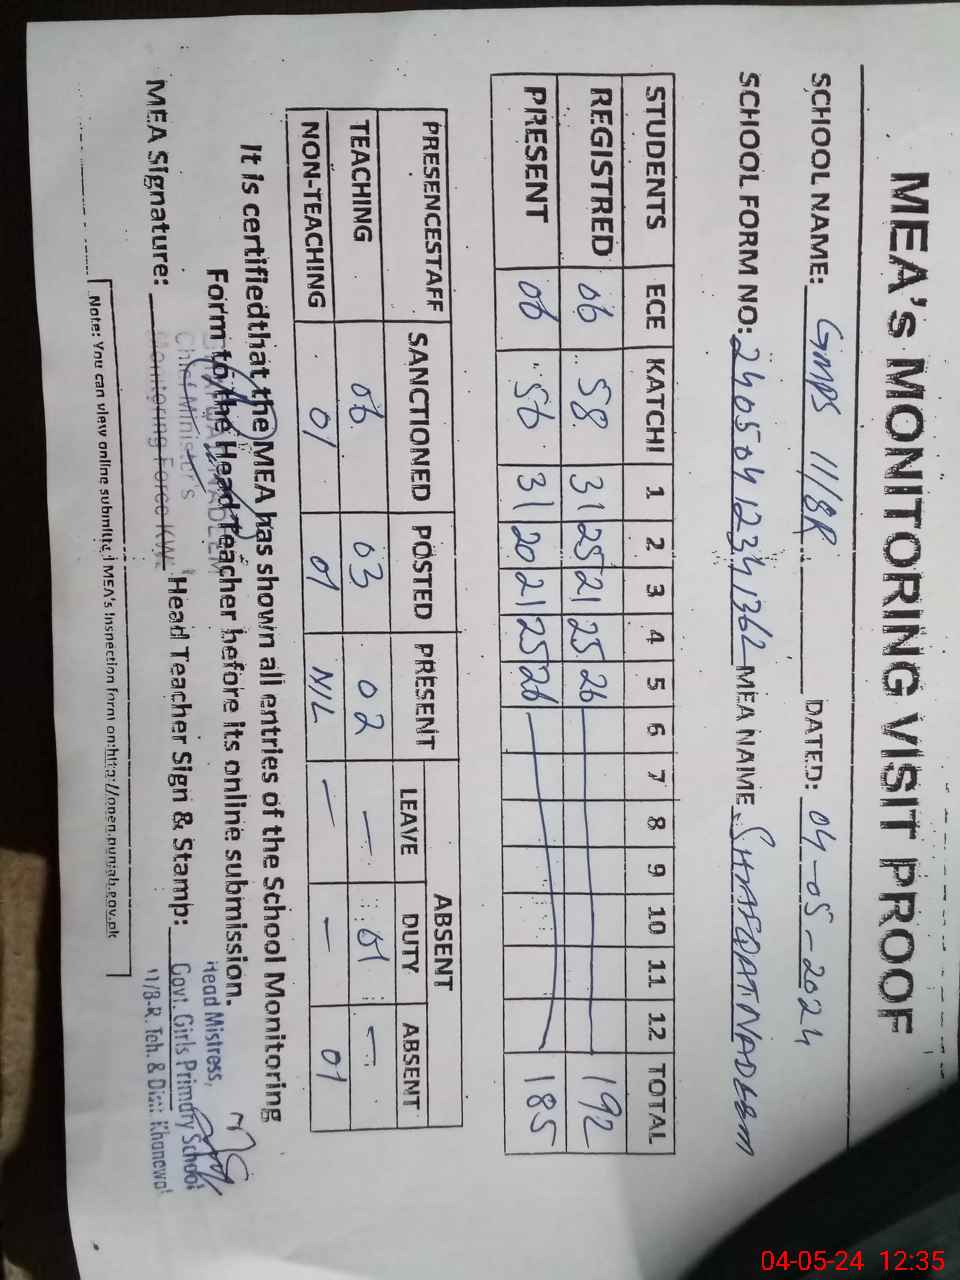 MEA's MONITORING VISIT PROOF
SCHOOL NAME: GMPS 11/8R DATED: 04-05-2024
SCHOOL FORM NO: MEA NAME
STUDENTS ECE KATCHI 1 2 3 4 5 6 7 8 9 10 11 12 TOTAL
REGISTRED 06 58 31 25 21 25 26 192
PRESENT 06 56 31 20 21 25 26 185
PRESENCESTAFF SANCTIONED POSTED PRESENT ABSENT
LEAVE DUTY ABSENT
TEACHING 06 03 02 — 01 —
NON-TEACHING 01 01 NIL — — 01
It is certifiedthat the MEA has shown all entries of the School Monitoring
Form to the Head Teacher before its online submission.
MEA Signature: Head Teacher Sign & Stamp:
Chief Minister's
Monitoring Force KWL
Head Mistress,
Govt. Girls Primary School
11/8-R, Teh. & Distt Khanewal
Note: You can view online submitted MEA's Inspection form on:http://open.punjab.gov.pk
04-05-24 12:35